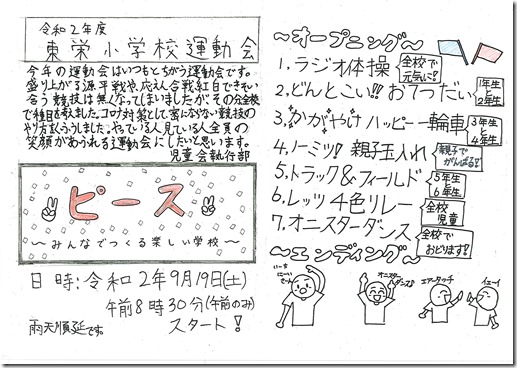 令和2年度
東栄小学校運動会
今年の運動会はいつもとちがう運動会です。
盛り上がる源平戦や、応えん合戦、紅白できそい
合う競技は無くなってしまいましたが、その分全校
で種目を考えました。コロナ対策として密にならない競技の
やり方もくふうしました。やっている人、見ている人全員の
笑顔があふれる運動会にしたいと思います。
児童会執行部
ピース
〜みんなでつくる楽しい学校〜
日時:令和2年9月19日(土)
午前8時30分(午前のみ)
スタート!
雨天順延です。
〜オープニング〜
1.ラジオ体操 全校で元気に!
2.どんとこい!!おてつだい 1年生と2年生
3.かがやけハッピー一輪車 3年生と4年生
4.ノーミツ!親子玉入れ 親子でがんばる!
5.トラック&フィールド 5年生6年生
6.レッツ4色リレー 全校児童
7.オニスターダンス 全校でおどります!
〜エンディング〜
いーち にーい さーん
オニスターダンス♪
エアータッチ
イェーイ